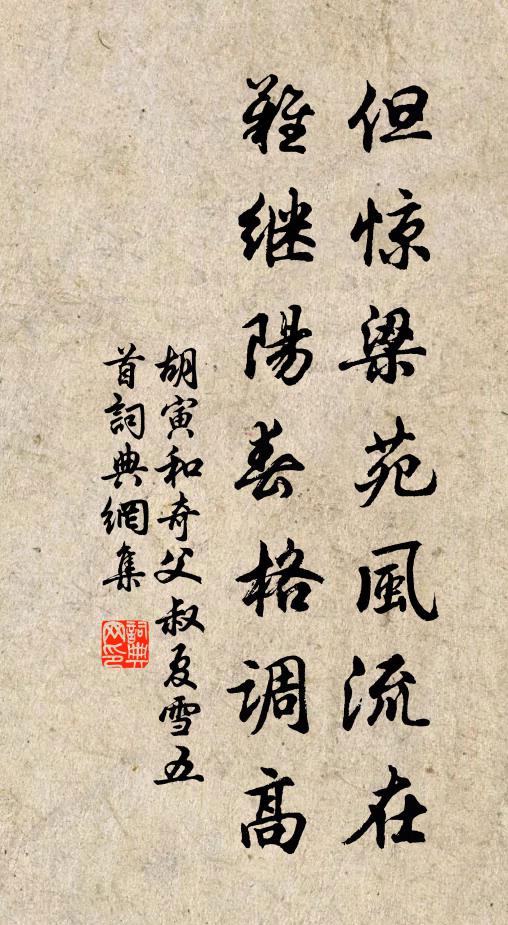 但惊梁苑風流在
難继陽春格调高
胡寅和奇父叔夏雪五
首詞典網集
詞典网印